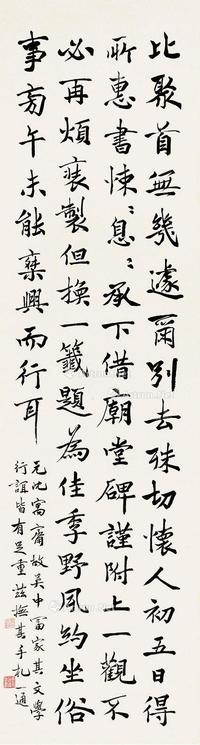 比聚首無幾遽爾別去殊切懷人初五日得
所惠書悚〻息〻承下借廟堂碑謹附上一觀不
必再煩裝製但換一籤題為佳季野風約坐俗
事旁午未能乘興而行耳
元沈 故吳中富家其文學
行誼皆有足重茲撫其手札一通